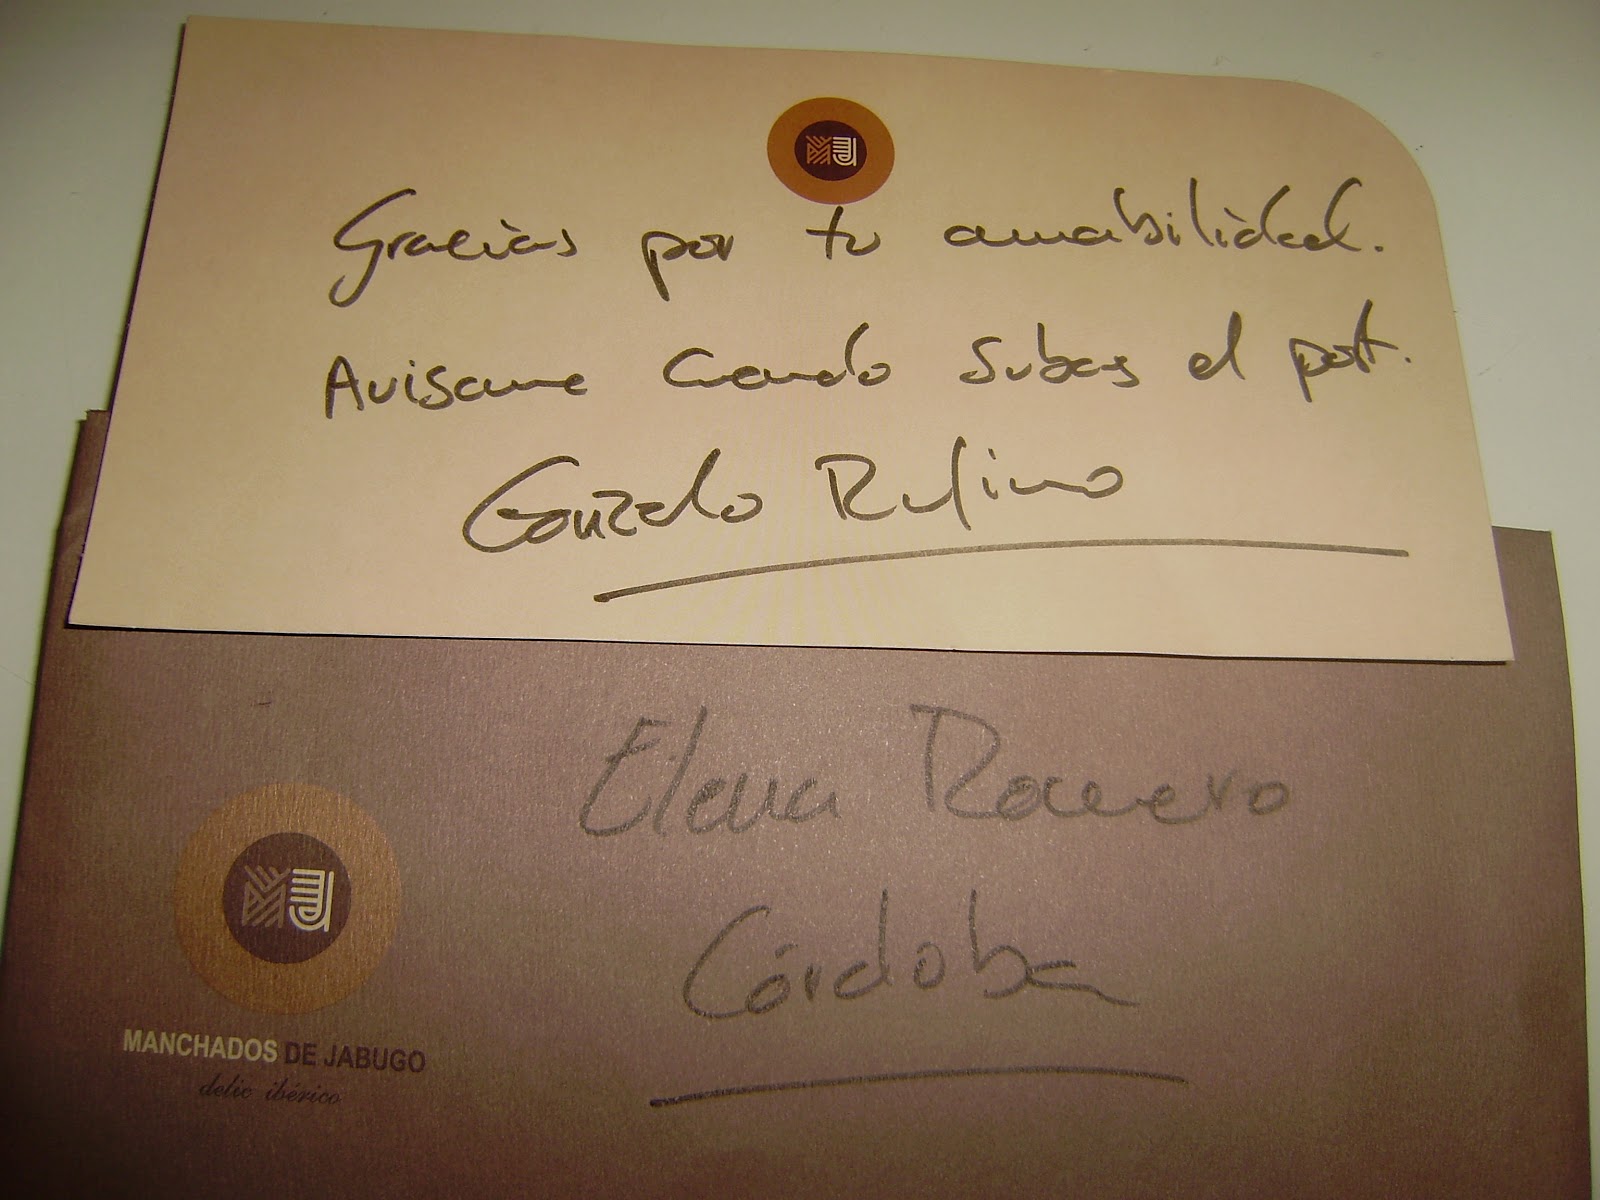 MJ
Gracias por tu amabilidad.
Avisame cuando subas el post.
Gonzalo Rufino
Elena Romero
Córdoba
MJ
MANCHADOS DE JABUGO
delic ibérico